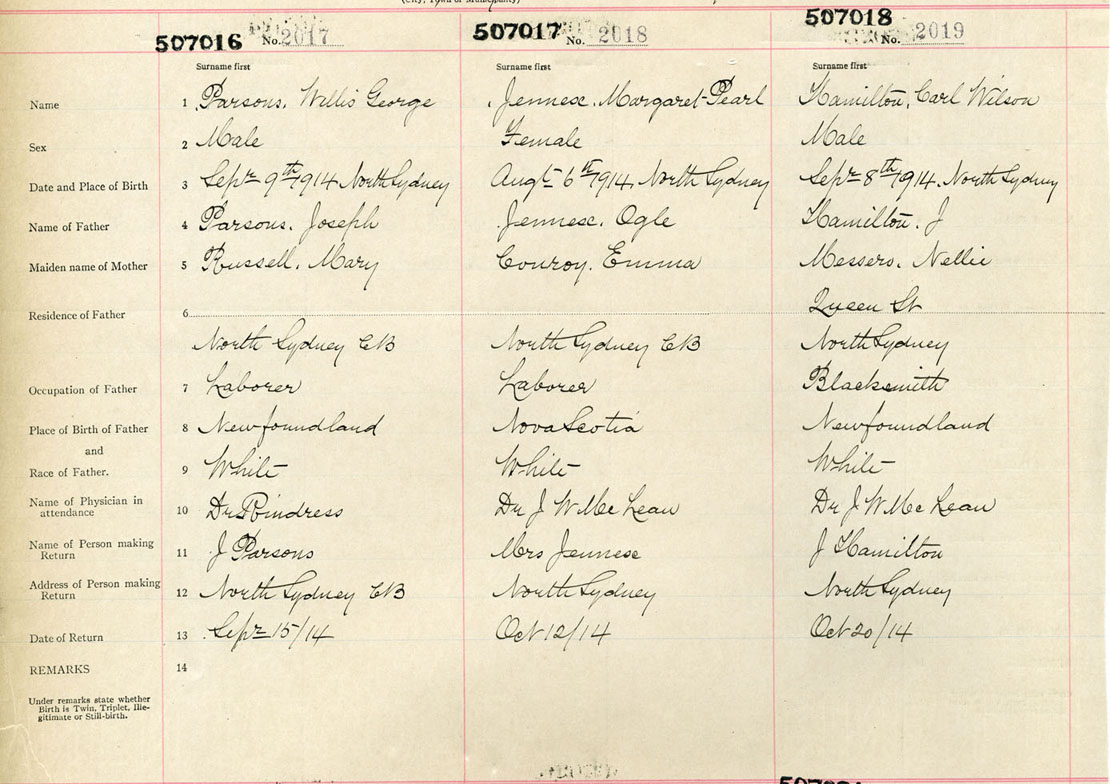 (City, Town or Municipality)
507016 No. 2017 507017 No. 2018 507018 No. 2019
Surname first Surname first Surname first
Name 1 Parsons, Willis George Jennex, Margaret Pearl Hamilton, Carl Wilson
Sex 2 Male Female Male
Date and Place of Birth 3 Sepr 9th 1914 North Sydney Augt 6th 1914, North Sydney Sepr 8th 1914, North Sydney
Name of Father 4 Parsons, Joseph Jennex, Ogle Hamilton, J
Maiden name of Mother 5 Russell, Mary Conroy, Emma Messero, Nellie
Queen St
Residence of Father 6
North Sydney CB North Sydney CB North Sydney
Occupation of Father 7 Laborer Laborer Blacksmith
Place of Birth of Father 8 Newfoundland Nova Scotia Newfoundland
and
Race of Father. 9 White White White
Name of Physician in
attendance 10 Dr Rindress Dr J W McLean Dr J W McLean
Name of Person making
Return 11 J Parsons Mrs Jennex J Hamilton
Address of Person making
Return 12 North Sydney CB North Sydney North Sydney
Date of Return 13 Sepr 15/14 Oct 12/14 Oct 20/14
REMARKS 14
Under remarks state whether
Birth is Twin, Triplet, Ille-
gitimate or Still-birth.